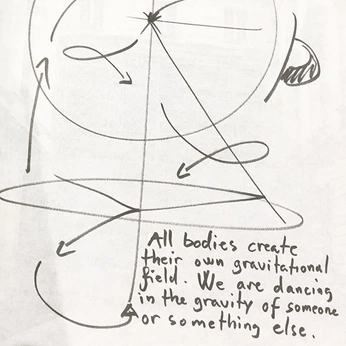 All bodies create
their own gravitational
field. We are dancing
in the gravity of someone
or something else.